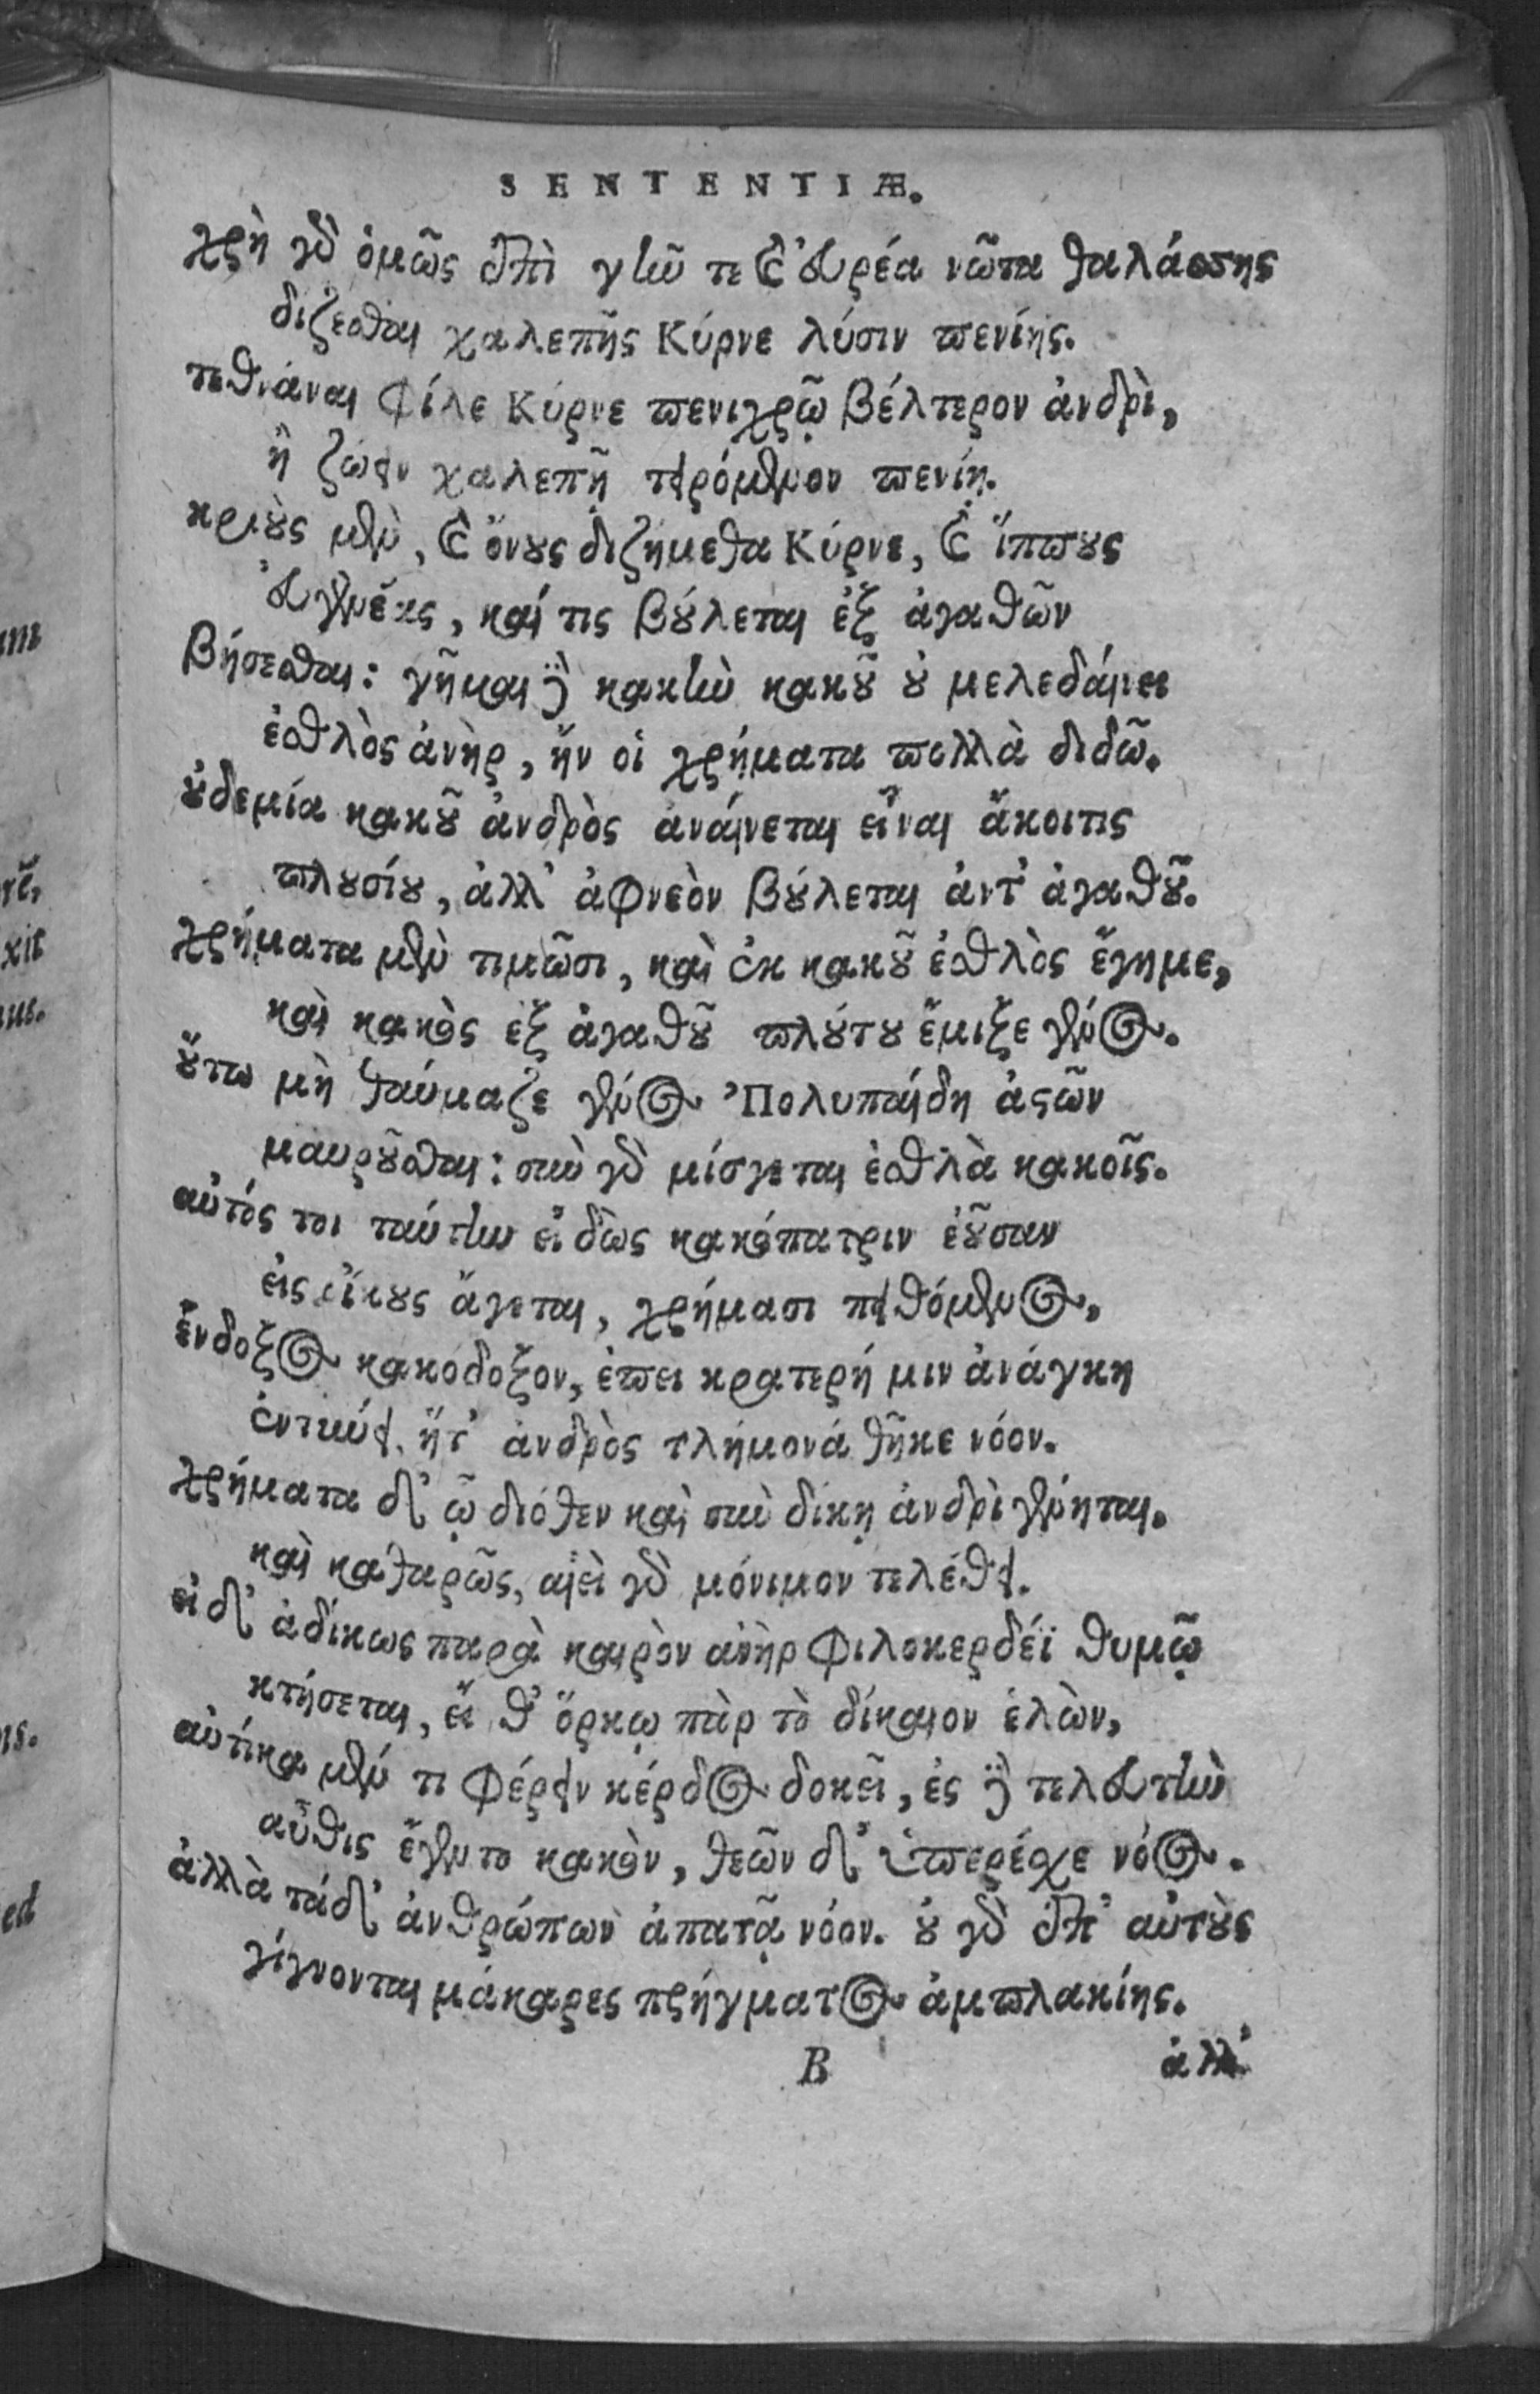 SENTENTIÆ.
χρὴ γὸ ὁμῶς ἐπὶ γῆν τε καὶ εὐρέα νῶτα θαλάσσης
δίζεσθαι χαλεπῆς Κύρνε λύσιν πενίης.
τεθνάναι φίλε Κύρνε πενιχρῷ βέλτερον ἀνδρὶ,
ἢ ζώειν χαλεπῇ τειρόμενον πενίῃ.
κριοὺς μὲν, καὶ ὄνους διζήμεθα Κύρνε, καὶ ἵππους
εὐγενέας, καί τις βούλεται ἐξ ἀγαθῶν
βήσεσθαι: γῆμαι δὲ κακὴν κακοῦ οὐ μελεδαίνει
ἐσθλὸς ἀνὴρ, ἤν οἱ χρήματα πολλὰ διδῶ.
οὐδεμία κακοῦ ἀνδρὸς ἀναίνεται εἶναι ἄκοιτις
πλουσίου, ἀλλ' ἀφνεὸν βούλεται ἀντ' ἀγαθοῦ.
χρήματα μὲν τιμῶσι, καὶ ἐκ κακοῦ ἐσθλὸς ἔγημε,
καὶ κακὸς ἐξ ἀγαθοῦ πλούτου ἔμιξε γένος.
οὕτω μὴ θαύμαζε γένος Πολυπαίδη ἀστῶν
μαυροῦσθαι: σὺν γὸ μίσγεται ἐσθλὰ κακοῖς.
αὐτός τοι ταύτην εἰδὼς κακόπατριν ἐοῦσαν
εἰς οἴκους ἄγεται, χρήμασι πειθόμενος,
ἔνδοξος κακόδοξον, ἐπει κρατερή μιν ἀνάγκη
ἐντύει, ἥτ' ἀνδρὸς τλήμονά θῆκε νόον.
χρήματα δ' ᾧ διόθεν καὶ σὺν δίκῃ ἀνδρὶ γένηται.
καὶ καθαρῶς, αἰεὶ γὸ μόνιμον τελέθει.
εἰ δ' ἀδίκως παρὰ καιρὸν ἀνὴρ φιλοκερδέϊ θυμῷ
κτήσεται, εἴ θ' ὅρκῳ πὰρ τὸ δίκαιον ἑλὼν,
αὐτίκα μέν τι φέρειν κέρδος δοκεῖ, ἐς δὲ τελευτὴν
αὖθις ἔγεντο κακὸν, θεῶν δ' ὑπερέχε νόος.
ἀλλὰ τάδ' ἀνθρώπων ἀπατᾷ νόον. οὐ γὸ ἐπ' αὐτοὺς
γίγνονται μάκαρες πρήγματος ἀμπλακίης.
B ἀλλ'